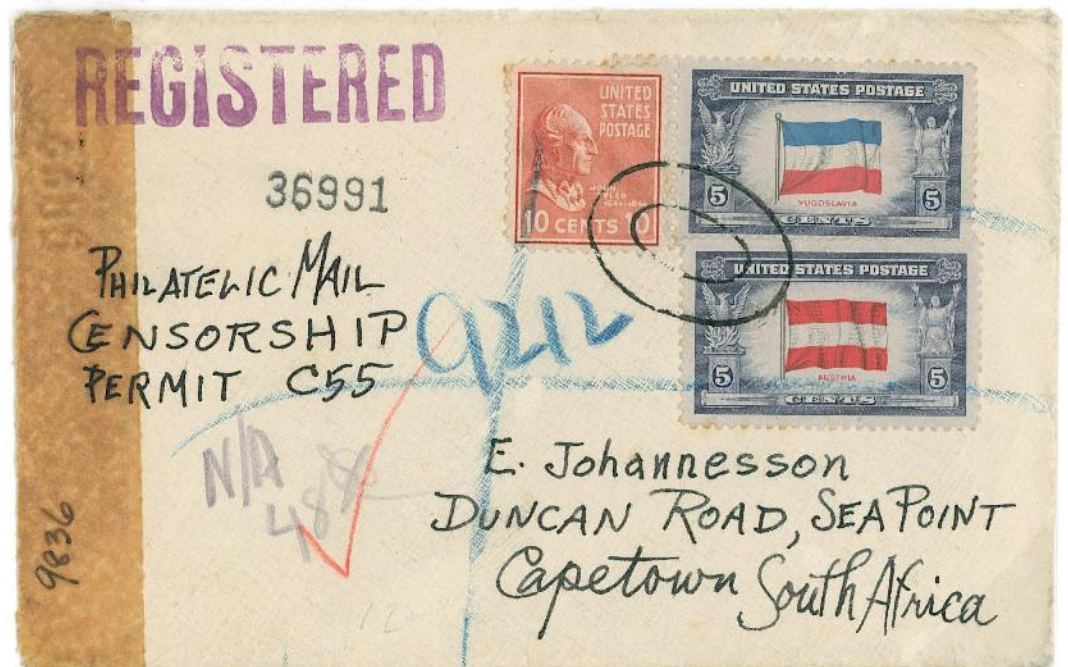 REGISTERED
36991
UNITED
STATES
POSTAGE
JOHN
TYLER
10 CENTS 10
UNITED STATES POSTAGE
YUGOSLAVIA
5 5
CENTS
UNITED STATES POSTAGE
AUSTRIA
5 5
CENTS
PHILATELIC MAIL
CENSORSHIP
PERMIT C55
9212
N/A
48
E. Johannesson
DUNCAN ROAD, SEA POINT
Capetown South Africa
9836